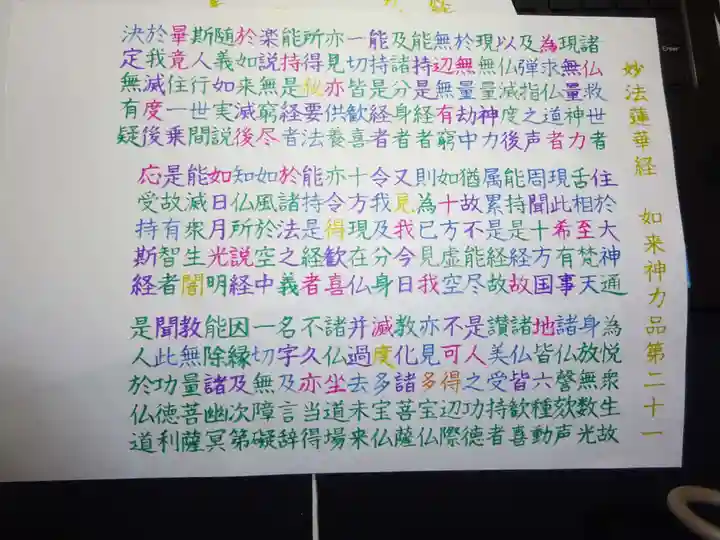 妙法蓮華経　如来神力品第二十一
諸仏救世者 住於大神通 為悦衆生故
現無量神力 舌相至梵天 身放無数光
為求仏道者 現此希有事 諸仏謦欬声
及弾指之声 周聞十方国 地皆六種動
以仏滅度後 能持是経故 諸仏皆歓喜
現無量神力 属累是経故 讃美受持者
於無量劫中 猶故不能尽 是人之功徳
無辺無有窮 如十方虚空 不可得辺際
能持是経者 則為已見我 亦見多宝仏
及諸分身者 又見我今日 教化諸菩薩
能持是経者 令我及分身 滅度多宝仏
一切皆歓喜 十方現在仏 并過去未来
亦見亦供養 亦令得歓喜 諸仏坐道場
所得秘要法 能持是経者 不久亦当得
能持是経者 於諸法之義 名字及言辞
楽説無窮尽 如風於空中 一切無障礙
於如来滅後 知仏所説経 因縁及次第
随義如実説 如日月光明 能除諸幽冥
斯人行世間 能滅衆生闇 教無量菩薩
畢竟住一乗 是故有智者 聞此功徳利
於我滅度後 応受持斯経 是人於仏道
決定無有疑